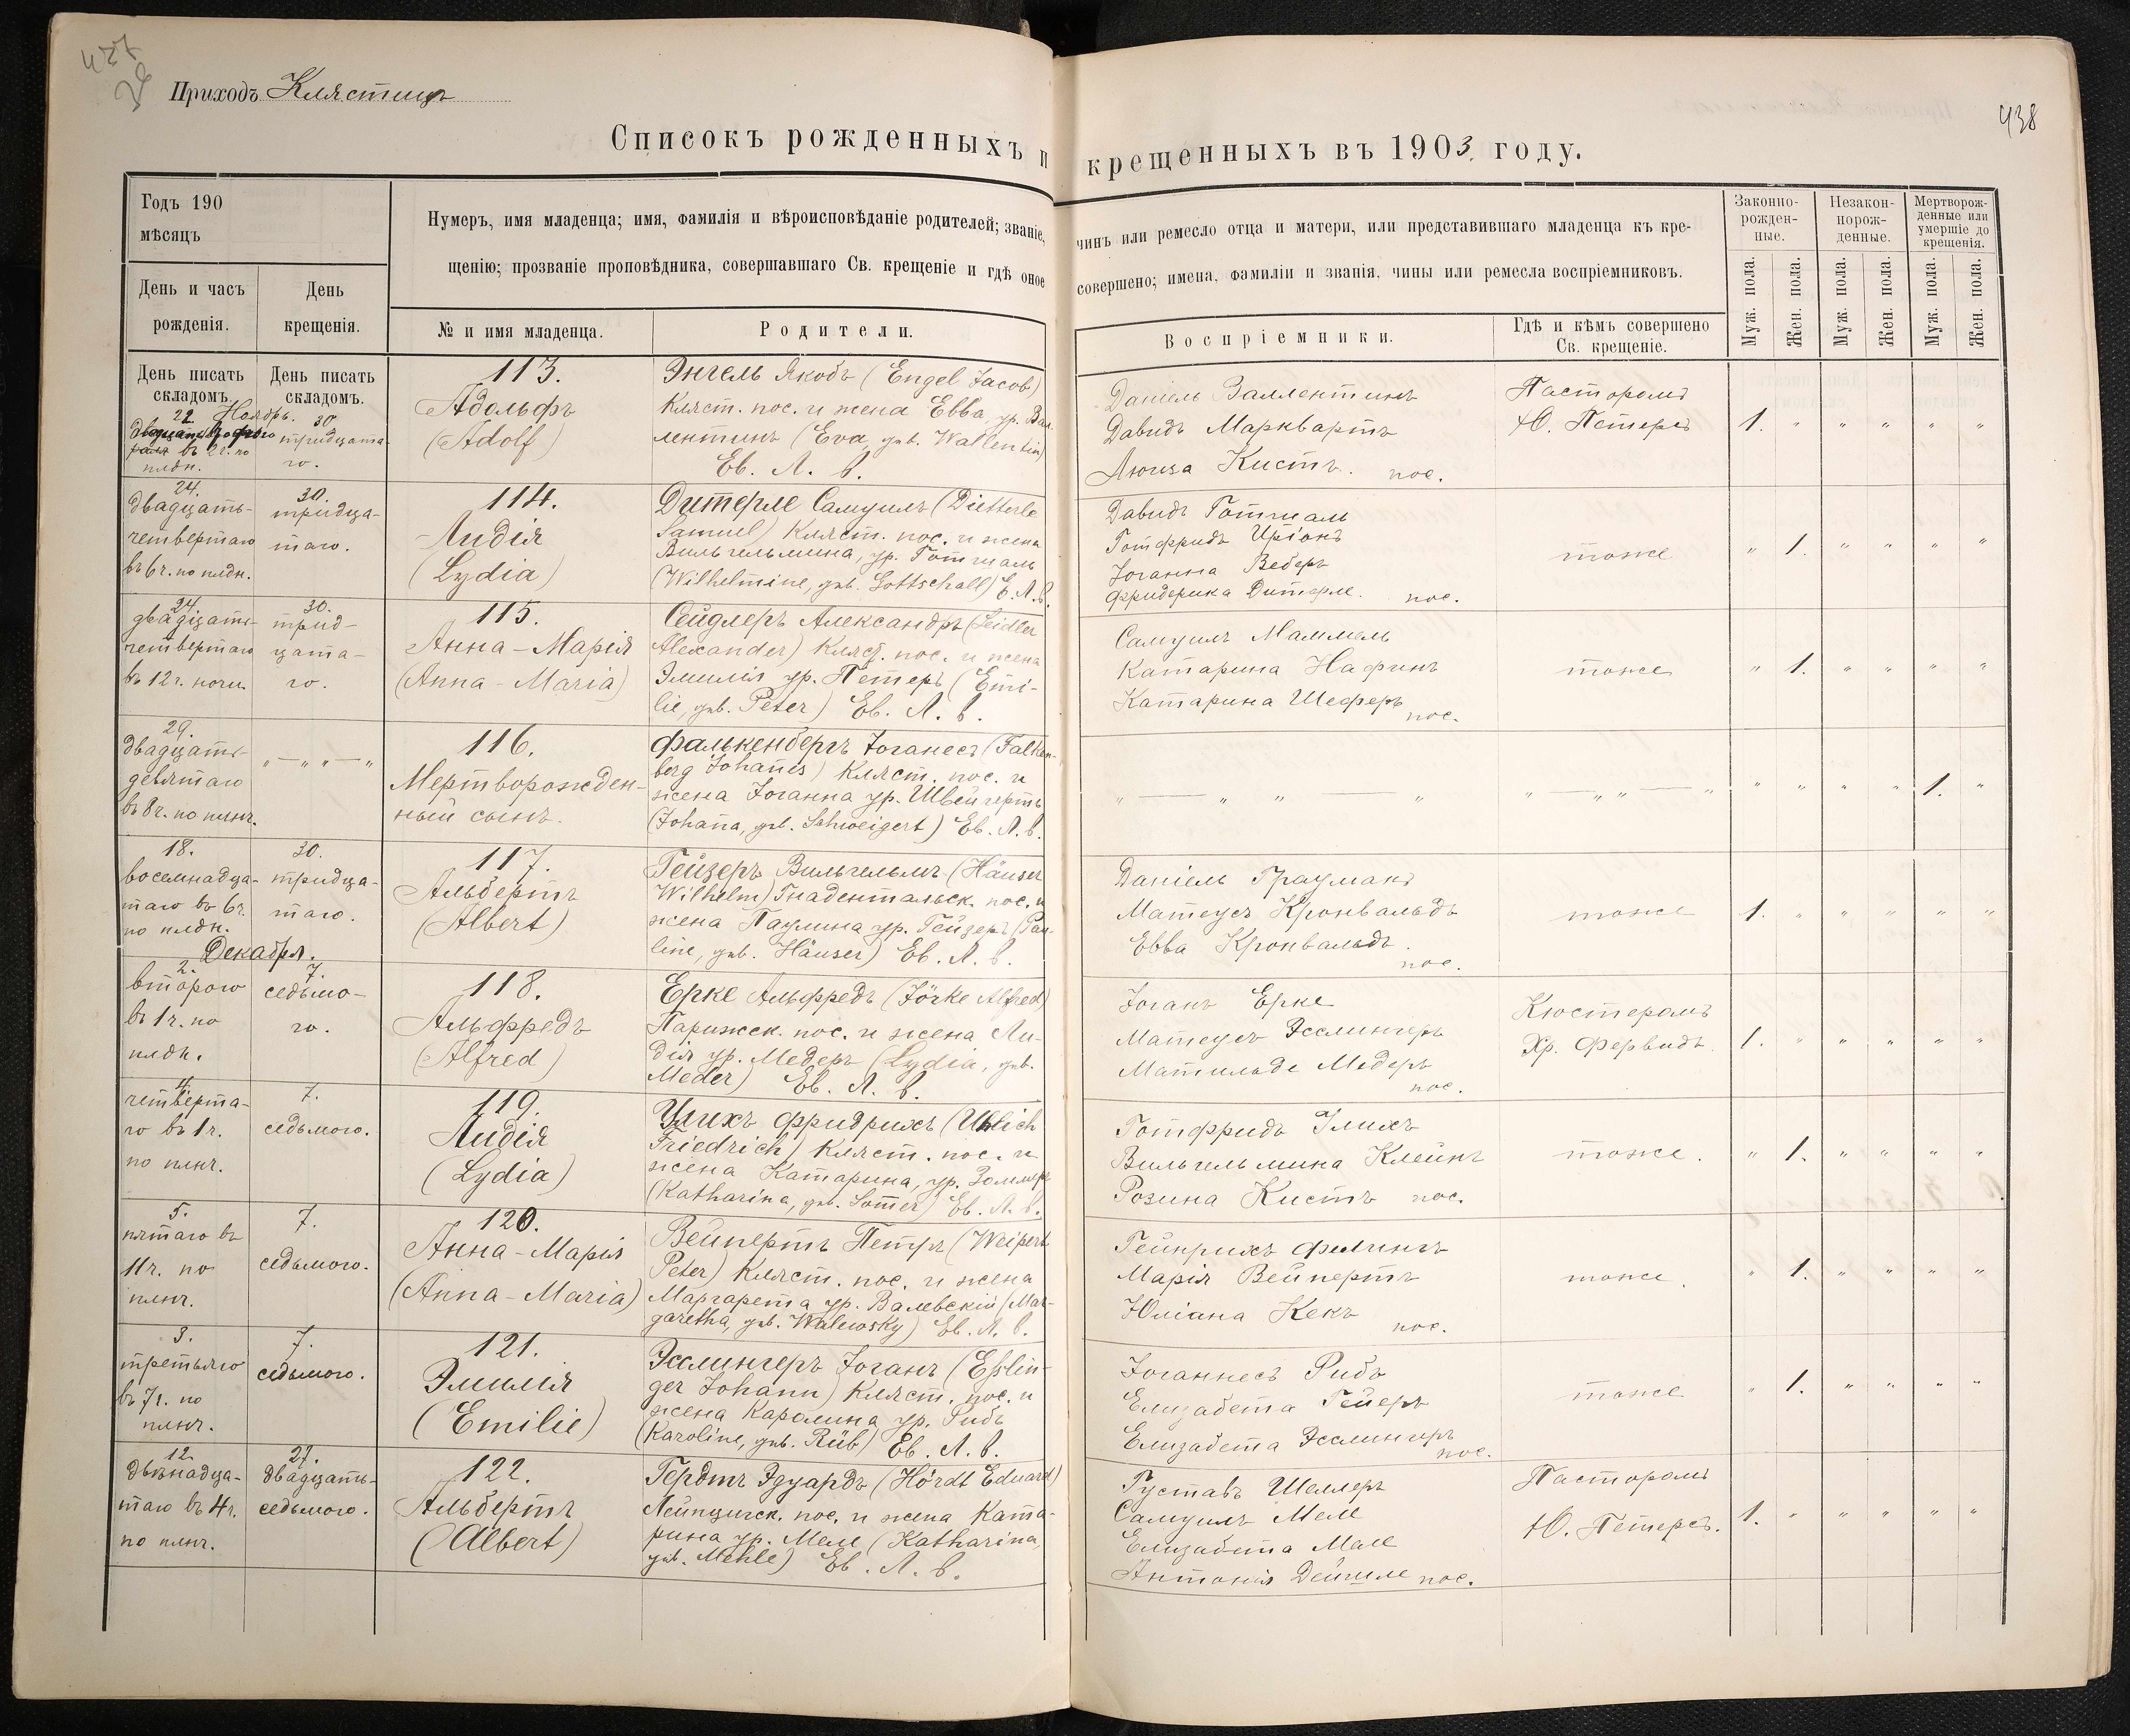 437
Приходъ Клястицъ
438
Списокъ рожденныхъ и крещенныхъ въ 1903. году.
Годъ 190
мѣсяцъ
Нумеръ, имя младенца; имя, фамилія и вѣроисповѣданіе родителей; званіе, чинъ или ремесло отца и матери, или представившаго младенца къ кре-
щенію; прозваніе проповѣдника, совершавшаго Св. крещеніе и гдѣ оное совершено; имена, фамиліи и званія, чины или ремесла воспріемниковъ.
Законно-
рожден-
ные.
Незакон-
норож-
денные.
Мертворож-
денные или
умершіе до
крещенія.
День и часъ
рожденія.
День
крещенія.
№ и имя младенца.
Родители.
Воспріемники.
Гдѣ и кѣмъ совершено
Св. крещеніе.
Муж. пола.
Жен. пола.
Муж. пола.
Жен. пола.
Муж. пола.
Жен. пола.
День писать
складомъ.
День писать
складомъ.
Ноябрь.
22
въ 2 ч. по
плдн.
30
тридцата-
го.
113.
Адольфъ
(Adolf)
Энгель Якобъ (Engel Jacob)
Кляст. пос. и жена Ева, ур. Вал-
лентинъ (Eva, geb. Wallentin)
Ев. Л. в.
Даніель Валлентинъ
Давидъ Марквартъ
Люиза Кистъ. пос.
Пасторомъ
Ю. Петерсъ
1. " " " " "
24.
двадцать-
четвертаго
въ 6 ч. по плдн.
30.
тридца-
таго.
114.
Лидія
(Lydia)
Дитерле Самуилъ (Dietterle
Samuel) Кляст. пос. и жена
Вильгельмина, ур. Готшаль
(Wilhelmine, geb. Gottschall) Е. Л. в.
Давидъ Готшаль
Готфридъ Иріонъ
Іоганна Веберъ
Фридерика Дитерле. пос.
тоже
" 1. " " " "
24.
двадцать-
четвертаго
въ 12 ч. ночи.
30.
трид-
цата-
го.
115.
Анна-Марія
(Anna-Maria)
Сейдлеръ Александръ (Seidler
Alexander) Кляст. пос. и жена
Эмилія ур. Петеръ (Emi-
lie, geb. Peter) Ев. Л. в.
Самуилъ Маммель
Катарина Нафинъ
Катарина Шеферъ
пос.
тоже
" 1. " " " "
29.
двадцать-
девятаго
въ 8 ч. по плнч.
" — " " — "
116.
Мертворожден-
ный сынъ.
Фалькенбергъ Іоганесъ (Falken-
berg Johanes) Кляст. пос. и
жена Іоганна ур. Швейгертъ
(Johana, geb. Schweigert) Ев. Л. в.
" — " " — "
" — " " — "
" " " " 1. "
18.
восемнадца-
таго въ 6 ч.
по плдн.
30.
тридца-
таго.
117.
Альбертъ
(Albert)
Гейзеръ Вильгельмъ (Häuser
Wilhelm) Гнадентальск. пос. и
жена Паулина ур. Гейзеръ (Pau-
line, geb. Häuser) Ев. Л. в.
Даніель Грауманъ
Матеусъ Кронвальдъ
Евва Кронвальдъ.
пос.
тоже
1. " " " " "
Декабря.
2.
второго
въ 1 ч. по
плдн.
7.
седьмо-
го.
118.
Альфредъ
(Alfred)
Ерке Альфредъ (Jörke Alfred)
Парижск. пос. и жена Ли-
дія ур. Медеръ (Lydia, geb.
Meder) Ев. Л. в.
Іоганъ Ерке
Матеусъ Эсслингеръ
Матильде Медеръ
пос.
Кюстеромъ
Хр. Фервидъ
1. " " " " "
4.
четверта-
го въ 1 ч.
по плнч.
7.
седьмого.
119.
Лидія
(Lydia)
Улихъ Фридрихъ (Uhlich
Friedrich) Кляст. пос. и
жена Катарина, ур. Зоммеръ
(Katharina, geb. Somer) Ев. Л. в.
Готфридъ Улихъ
Вильгельмина Клейнъ
Розина Кистъ пос.
тоже.
" 1. " " " "
5.
пятаго въ
11 ч. по
плнч.
7.
седьмого.
120.
Анна-Марія
(Anna-Maria)
Вейпертъ Петръ (Weipert
Peter) Кляст. пос. и жена
Маргарета ур. Валевскій (Mar-
garetha, geb. Walewsky) Ев. Л. в.
Гейнрихъ
Марія Вейпертъ
Юліана Кекъ
пос.
тоже.
" 1. " " " "
3.
третьяго
въ 7 ч. по
плнч.
7.
седьмого.
121.
Эмилія
(Emilie)
Эсслингеръ Іоганъ (Eßlin-
ger Johann) Кляст. пос. и
жена Каролина ур. Рибъ
(Karoline, geb. Rüb) Ев. Л. в.
Іоганнесъ Рибъ
Елизабета Гейеръ
Елизабета Эсслингеръ
пос.
тоже
" 1. " " " "
12.
двѣнадца-
таго въ 4 ч.
по плнч.
27.
двадцать-
седьмого.
122.
Альбертъ
(Albert)
Гердтъ Эдуардъ (Hördt Eduard)
Лейпцигск. пос. и жена Ката-
рина ур. Меле (Katharina,
geb. Mehle) Ев. Л. в.
Густавъ Шеллеръ
Самуилъ Меле
Елизабета Меле
Антонія Дейшле пос.
Пасторомъ
Ю. Петерсъ.
1. " " " " "